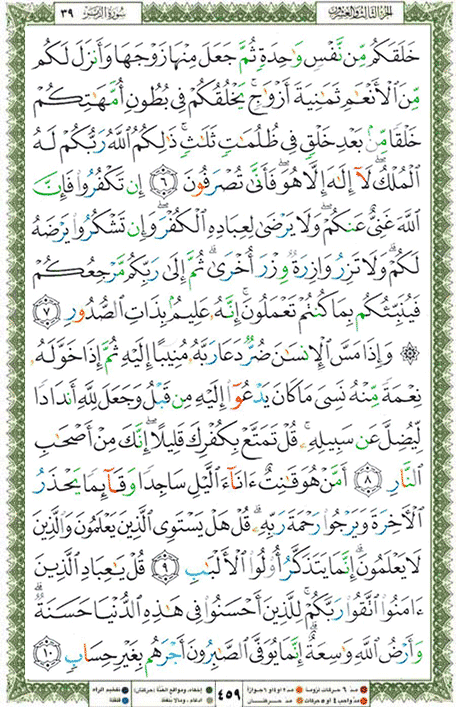 الجزء الثالث والعشرون
سورة الزمر
٣٩
خَلَقَكُم مِّن نَّفْسٍ وَٰحِدَةٍ ثُمَّ جَعَلَ مِنْهَا زَوْجَهَا وَأَنزَلَ لَكُم
مِّنَ ٱلْأَنْعَٰمِ ثَمَٰنِيَةَ أَزْوَٰجٍ ۚ يَخْلُقُكُمْ فِى بُطُونِ أُمَّهَٰتِكُمْ
خَلْقًا مِّنۢ بَعْدِ خَلْقٍ فِى ظُلُمَٰتٍ ثَلَٰثٍ ۚ ذَٰلِكُمُ ٱللَّهُ رَبُّكُمْ لَهُ
ٱلْمُلْكُ ۖ لَآ إِلَٰهَ إِلَّا هُوَ ۖ فَأَنَّىٰ تُصْرَفُونَ ٦ إِن تَكْفُرُوا۟ فَإِنَّ
ٱللَّهَ غَنِىٌّ عَنكُمْ ۖ وَلَا يَرْضَىٰ لِعِبَادِهِ ٱلْكُفْرَ ۖ وَإِن تَشْكُرُوا۟ يَرْضَهُ
لَكُمْ ۗ وَلَا تَزِرُ وَازِرَةٌ وِزْرَ أُخْرَىٰ ۗ ثُمَّ إِلَىٰ رَبِّكُم مَّرْجِعُكُمْ
فَيُنَبِّئُكُم بِمَا كُنتُمْ تَعْمَلُونَ ۚ إِنَّهُۥ عَلِيمٌۢ بِذَاتِ ٱلصُّدُورِ ٧
۞ وَإِذَا مَسَّ ٱلْإِنسَٰنَ ضُرٌّ دَعَا رَبَّهُۥ مُنِيبًا إِلَيْهِ ثُمَّ إِذَا خَوَّلَهُۥ
نِعْمَةً مِّنْهُ نَسِىَ مَا كَانَ يَدْعُوٓا۟ إِلَيْهِ مِن قَبْلُ وَجَعَلَ لِلَّهِ أَندَادًا
لِّيُضِلَّ عَن سَبِيلِهِۦ ۚ قُلْ تَمَتَّعْ بِكُفْرِكَ قَلِيلًا ۖ إِنَّكَ مِنْ أَصْحَٰبِ
ٱلنَّارِ ٨ أَمَّنْ هُوَ قَٰنِتٌ ءَانَآءَ ٱلَّيْلِ سَاجِدًا وَقَآئِمًا يَحْذَرُ
ٱلْءَاخِرَةَ وَيَرْجُوا۟ رَحْمَةَ رَبِّهِۦ ۗ قُلْ هَلْ يَسْتَوِى ٱلَّذِينَ يَعْلَمُونَ وَٱلَّذِينَ
لَا يَعْلَمُونَ ۗ إِنَّمَا يَتَذَكَّرُ أُو۟لُوا۟ ٱلْأَلْبَٰبِ ٩ قُلْ يَٰعِبَادِ ٱلَّذِينَ
ءَامَنُوا۟ ٱتَّقُوا۟ رَبَّكُمْ ۚ لِلَّذِينَ أَحْسَنُوا۟ فِى هَٰذِهِ ٱلدُّنْيَا حَسَنَةٌ ۗ
وَأَرْضُ ٱللَّهِ وَٰسِعَةٌ ۗ إِنَّمَا يُوَفَّى ٱلصَّٰبِرُونَ أَجْرَهُم بِغَيْرِ حِسَابٍ ١٠
٤٥٩